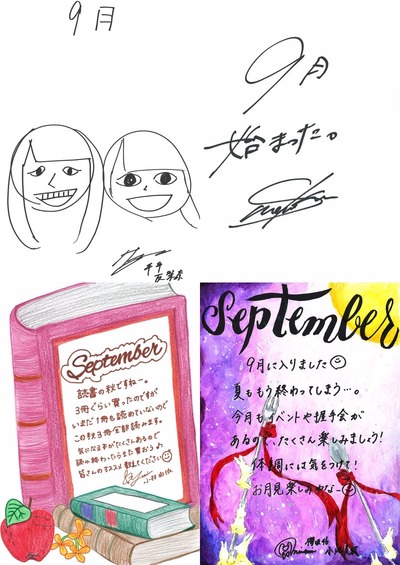 9月
9月
始まった。
平手
友梨奈
September
読書の秋ですねー。
3冊ぐらい買ったのですが
いまだ1冊も読めていないので
この秋3冊全部読みます。
気になる本がたくさんあるので
読み終わったらまた買おう♪
皆さんのオススメ教えてください
September
9月に入りました
夏ももう終わってしまう…。
今月もイベントや握手会が
あるので、たくさん楽しみましょう!
体調には気をつけて!
お月見楽しみだなー
欅坂46